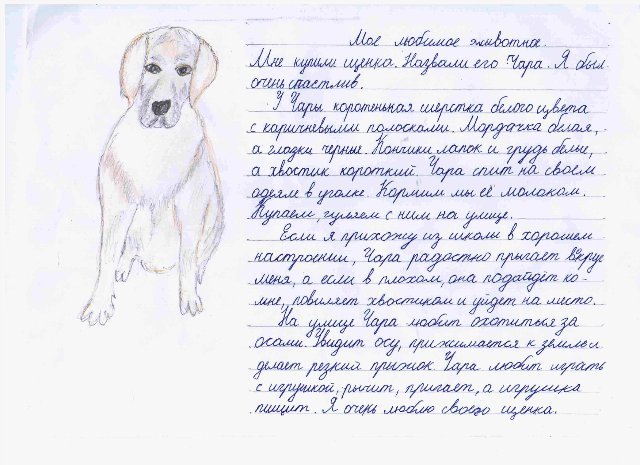 Мое любимое животное.
Мне купили щенка. Назвали его Чара. Я был
очень счастлив.
У Чары коротенькая шерстка белого цвета
с коричневыми полосками. Мордачка белая,
а глазки черные. Кончики лапок и грудь белые,
а хвостик короткий. Чара спит на своем
одеяле в уголке. Кормим мы её молоком.
Купаем, гуляем с ним на улице.
Если я прихожу из школы в хорошем
настроении, Чара радостно прыгает вокруг
меня, а если в плохом, она подайдёт ко
мне, повиляет хвостиком и уйдет на место.
На улице Чара любит охотиться за
осами. Увидит осу, прижимается к земле и
делает резкий прыжок. Чара любит играть
с игрушкой, рычит, прыгает, а игрушка
пищит. Я очень люблю своего щенка.